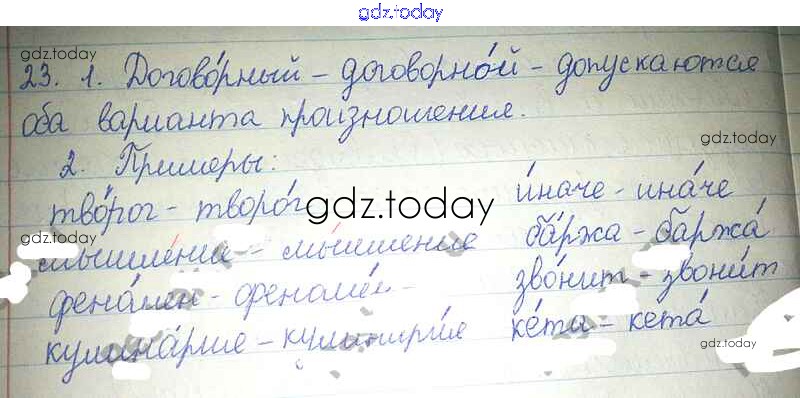 gdz.today
gdz.today
23. 1. Догово́рный - договорно́й - допускаются
оба варианта произношения.
gdz.today
2. Примеры:
тво́рог - творо́г
и́наче - ина́че
gdz.today
мышле́ние - мы́шление
ба́ржа - баржа́
фено́мен - феноме́н
зво́нит - звони́т
gdz.today
кулина́рия - кулинари́я
ке́та - кета́
gdz.today